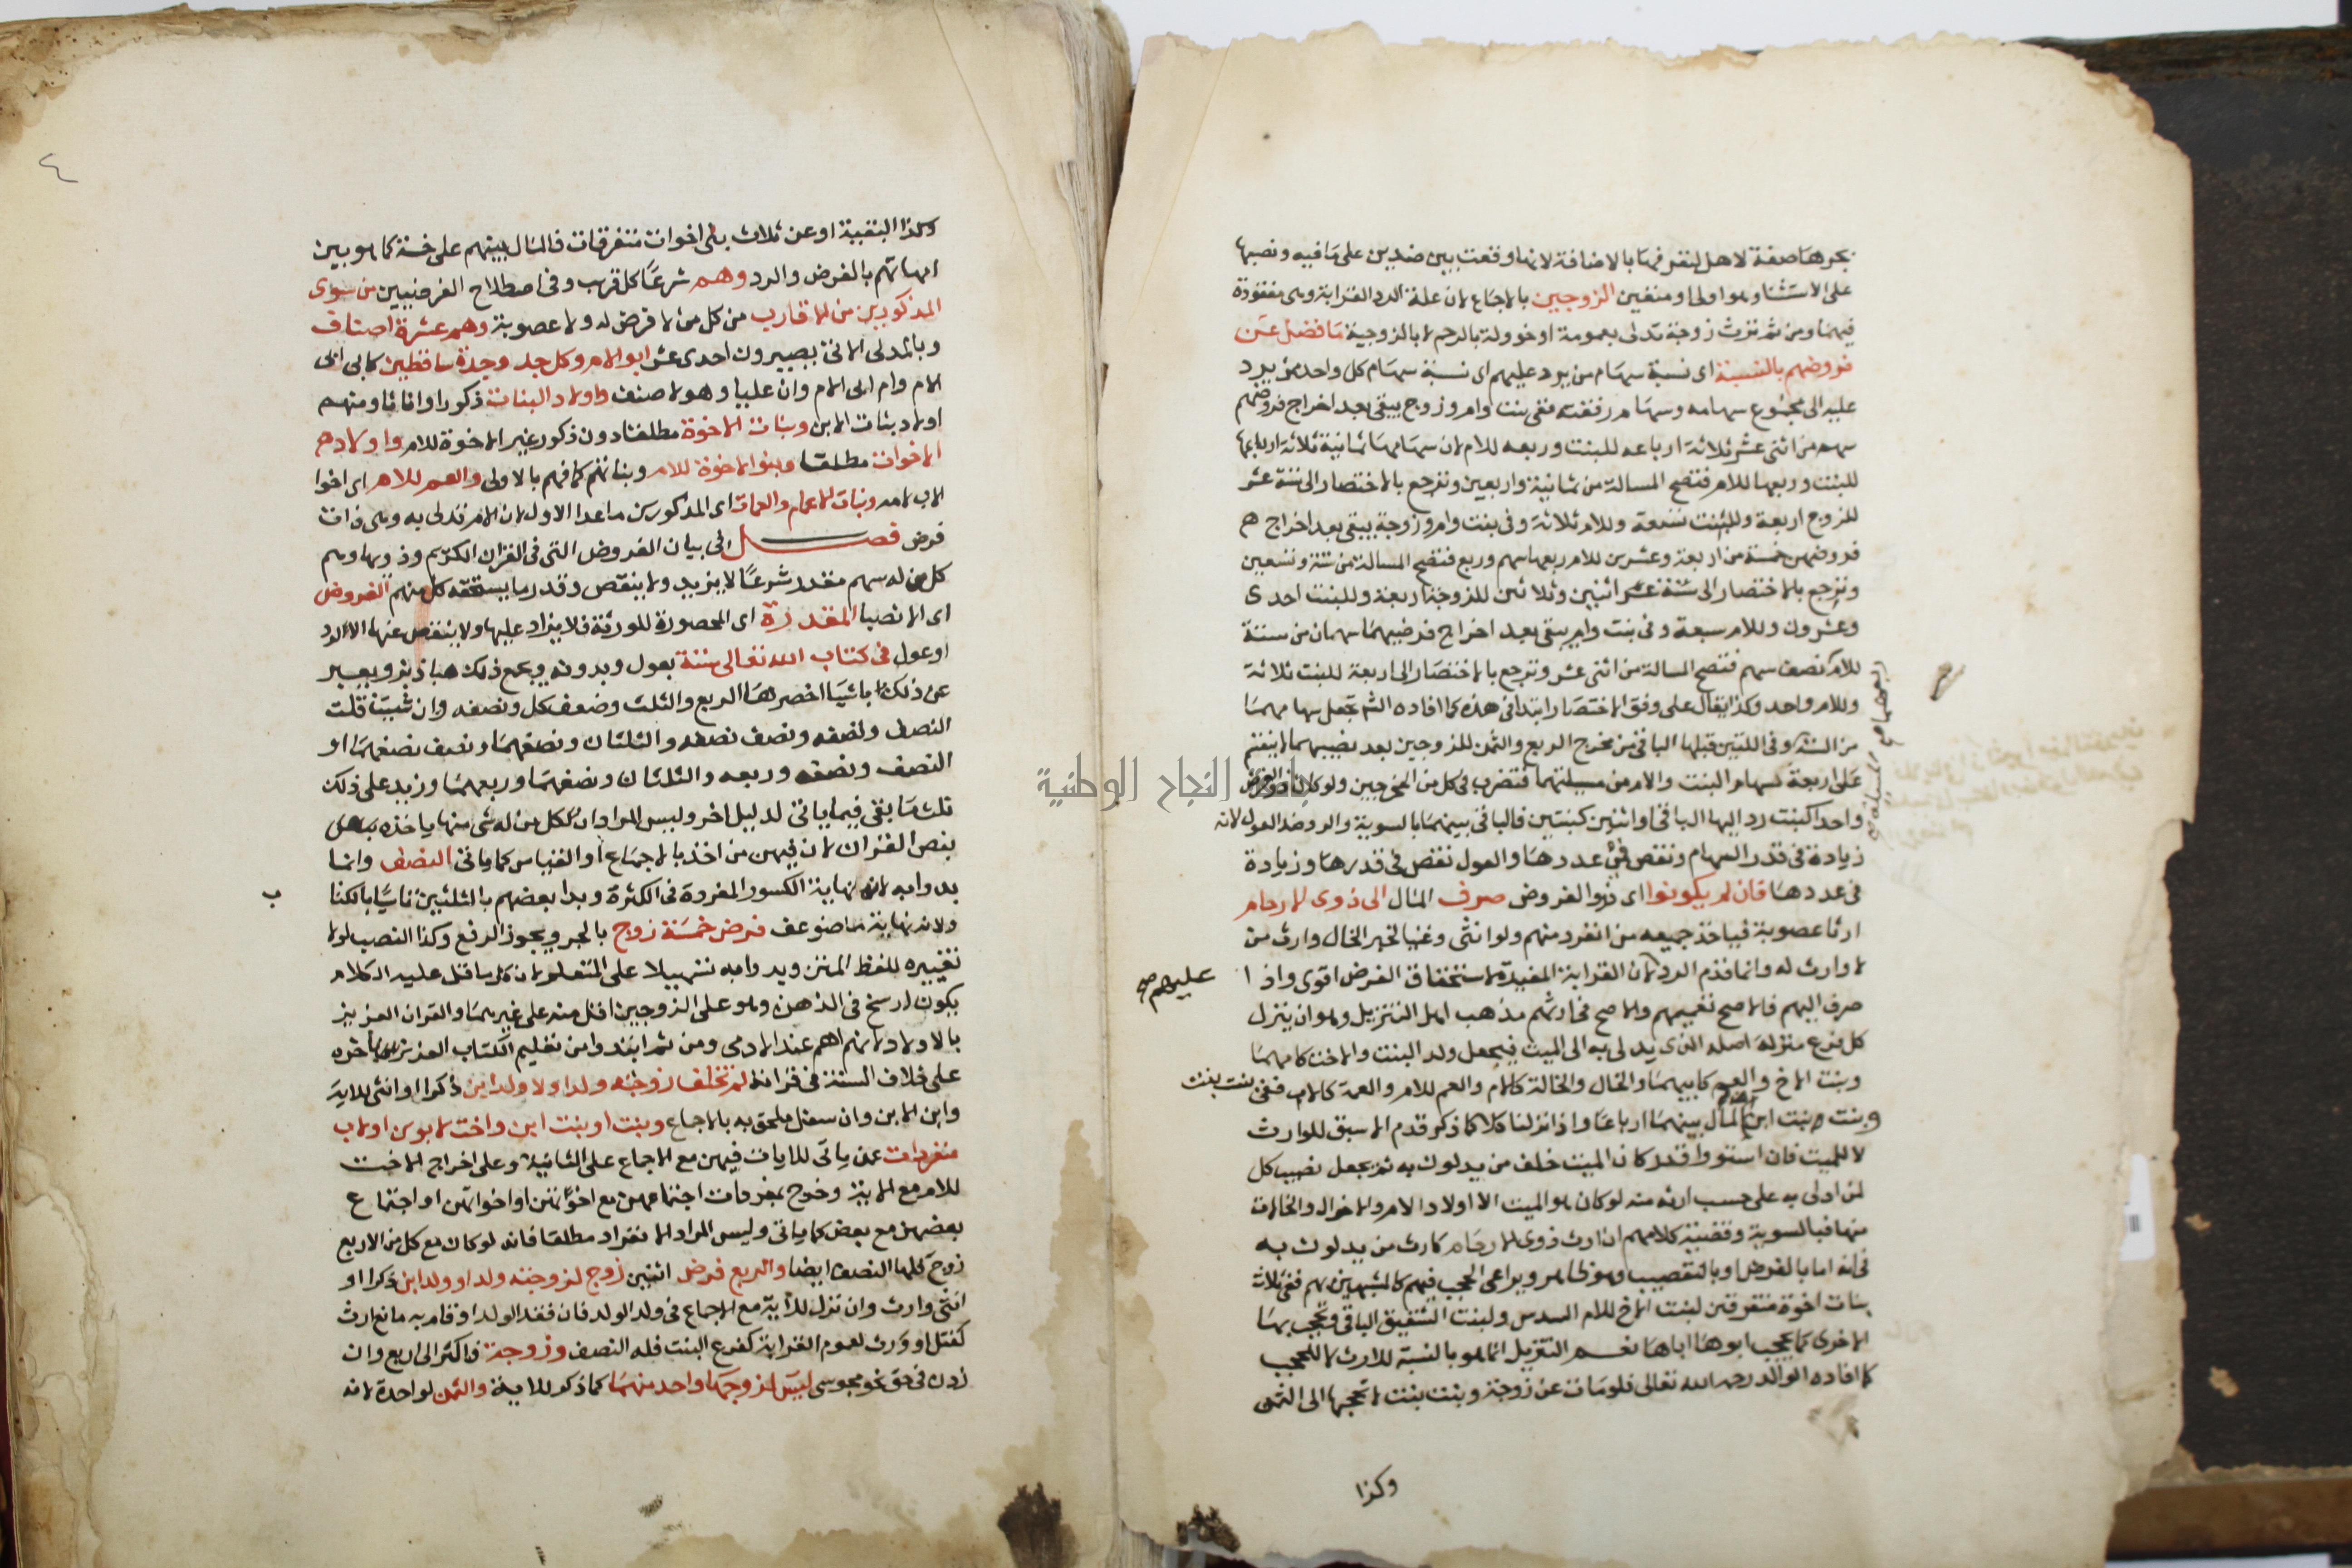 بجرها صفة لاهل لتعرفها بالاضافة لانها وقعت بين ضدين على ما فيه ونصبها
على الاستثنا وهو اولى او متعين الزوجين بالاجماع لان علة الرد القرابة وهى مفقودة
فيهما ومن ثم ترث زوجة تدلى بعمومة او خوولة بالرحم لا بالزوجية ما فضل عن
فروضهم بالنسبة اى نسبة سهام من يرد عليهم اى نسبة سهام كل واحد ممن يرد
عليه الى مجموع سهامه وسهام رفقته ففى بنت وام وزوج يبقى بعد اخراج فروضهم
سهم من اثنى عشر ثلاثة ارباعه للبنت وربعه للام لان سهامهما ثمانية ثلاثة ارباعها
للبنت وربعها للام فتصح المسالة من ثمانية واربعين وترجع بالاختصار الى ستة عشر
للزوج اربعة وللبنت تسعة وللام ثلاثة وفى بنت وام وزوجة يبقى بعد اخراج
فروضهن خمسة من اربعة وعشرين للام ربعها سهم وربع فتصح المسالة من ستة وتسعين
وترجع بالاختصار الى اثنين وثلاثين للزوجة اربعة وللبنت احدى
وعشرون وللام سبعة وفى بنت وام يبقى بعد اخراج فرضيهما سهمان من ستة
للام نصف سهم فتصح المسالة من اثنى عشر وترجع بالاختصار الى اربعة للبنت ثلاثة
وللام واحد وكذا يقال على وفق الاختصار ابتدا فى هذه كما افاده الشم تجعل سهامهما
من الستة وفى اللتين قبلها الباقى من مخرج الربع والثمن للزوجين بعد نصيبهما لا ينقسم
على اربعة سهام البنت والام من مسئلتهما فتضرب فى كل من المخرجين ولو كان ذو الفرض
واحدا كبنت رد اليها الباقى او اثنين كبنتين فالباقى بينهما بالسوية والرد ضد العول لانه
زيادة فى قدر السهام ونقص فى عددها والعول نقص فى قدرها وزيادة
فى عددها فان لم يكونوا اى ذوو الفروض صرف المال الى ذوى الارحام
ارثا عصوبة فياخذ جميعه من انفرد منهم ولو انثى وغنيا لخبر الخال وارث من
لا وارث له وانما قدم الرد لان القرابة المفيدة لاستحقاق الفرض اقوى واذا
عليهم صح
صرف اليهم فالاصح تعميمهم والاصح فى ارثهم مذهب اهل التنزيل وهو ان ينزل
كل فرع منزلة اصله الذى يدلى به الى الميت فيجعل ولد البنت والاخت كامهما
وبنت الاخ والعم كابيهما والخال والخالة كالام والعم للام والعمة كالاب ففى بنت بنت
وبنت بنت ابن المال بينهما ارباعا واذا نزلنا كلا كما ذكر قدم الاسبق للوارث
لا للميت فان استووا قدر كان الميت خلف من يدلون به ثم يجعل نصيب كل
لمن ادلى به على حسب ارثه منه لو كان هو الميت الا اولاد الام والاخوال والخالات
منها فبالسوية وقضية كلامهم ان ارث ذوى الارحام كارث من يدلون به
فى انه اما بالفرض او بالتعصيب وهو ظاهر ويراعى الحجب فيهم كالمشبهين بهم ففى ثلاث
بنات اخوة متفرقين لبنت الاخ للام السدس ولبنت الشقيق الباقى وتحجب بها
الاخرى كما يحجب ابوها اباها نعم التنزيل انما هو بالنسبة للارث لا للحجب
كما افاده الوالد رحمه الله تعالى فلو مات عن زوجة وبنت بنت لا تحجبها الى الثمن
وكذا
وكذا البقية او عن ثلاث بنى اخوات متفرقات فالمال بينهم على خمسة كما هو بين
امهاتهم بالفرض والرد وهم شرعا كل قريب وفى اصطلاح الفرضيين من سوى
المذكورين من الاقارب من كل من لا فرض له ولا عصوبة وهم عشرة اصناف
وبالمدلى الاتى يصيرون احدى عشر ابو الام وكل جد وجدة ساقطين كابى ابى
الام وام ابى الام وان عليا وهولا صنف واولاد البنات ذكورا واناثا ومنهم
اولاد بنات الابن وبنات الاخوة مطلقا دون ذكور غير الاخوة للام واولاد
الاخوات مطلقا وبنو الاخوة للام وبناتهم كما فهم بالاولى والعم للام اى اخوا
الاب لامه وبنات الاعمام والعمات اى المذكورين ما عدا الاول لان الام تدلى به وهى ذات
فرض فصل فى بيان الفروض التى فى القران الكريم وذويها وهم
كل من له سهم مقدر شرعا لا يزيد ولا ينقص وقدر ما يستحقه كل منهم الفروض
اى الانصبا المقدرة اى المحصورة للورثة فلا يزاد عليها ولا ينقص عنها الا لرد
او عول فى كتاب الله تعالى ستة بعول وبدونه ويجمع ذلك هبا دبز ويعبر
عن ذلك باشيا اخصرها الربع والثلث وضعف كل ونصفه وان شيت قلت
النصف ونصفه ونصف نصفه والثلثان ونصفهما ونصف نصفهما او
النصف ونصفه وربعه والثلثان ونصفهما وربعهما وزيد على ذلك
ثلث ما بقى فيما ياتى لدليل اخر وليس المراد ان كل من له شى منها ياخذه
بنص القران لان فيهن من اخذ بالاجماع او القياس كما ياتى النصف وانما
بدوا به لانه نهاية الكسور المفردة فى الكثرة وبدا بعضهم بالثلثين تاسيا بالكتاب
ولانه نهاية ما ضوعف فرض خمسة زوج بالجر ويجوز الرفع وكذا النصب لولا
تغييره للفظ المتن وبدوا به تسهيلا على المتعلم لان كل ما قل عليه الكلام
يكون ارسخ فى الذهن وهو على الزوجين اقل منه على غيرهما والقران العزيز
بالاولاد لانهم اهم عند الادمى ومن ثم ابتدوا من تعليم الكتاب العزيز باخره
على خلاف السنة فى قراة لم تخلف زوجته ولدا ولا ولد ابن ذكرا او انثى للاية
وابن الابن وان سفل ملحق به بالاجماع وبنت او بنت ابن واخت لابوين او لاب
منفردات عمن ياتى للايات فيهن مع الاجماع على الثانية وعلى اخراج الاخت
للام مع الاية وخرج بمفردات اجتماعهن مع اخوتهن او اخواتهن او اجتماع
بعضهن مع بعض كما ياتى وليس المراد الانفراد مطلقا فانه لو كان مع كل من الاربع
زوج فلها النصف ايضا والربع فرض اثنين زوج لزوجته ولد او ولد ابن ذكرا او
انثى وارث وان نزل للاية مع الاجماع فى ولد الولد فان فقد الولد او قام به مانع ارث
كقتل او ورث لعموم القرابة كفرع البنت فله النصف وزوجة فاكثر الى اربع وان
زدن فى حق نحو مجوسى ليس لزوجها واحد منهما كما ذكر للاية والثمن لواحدة لانه